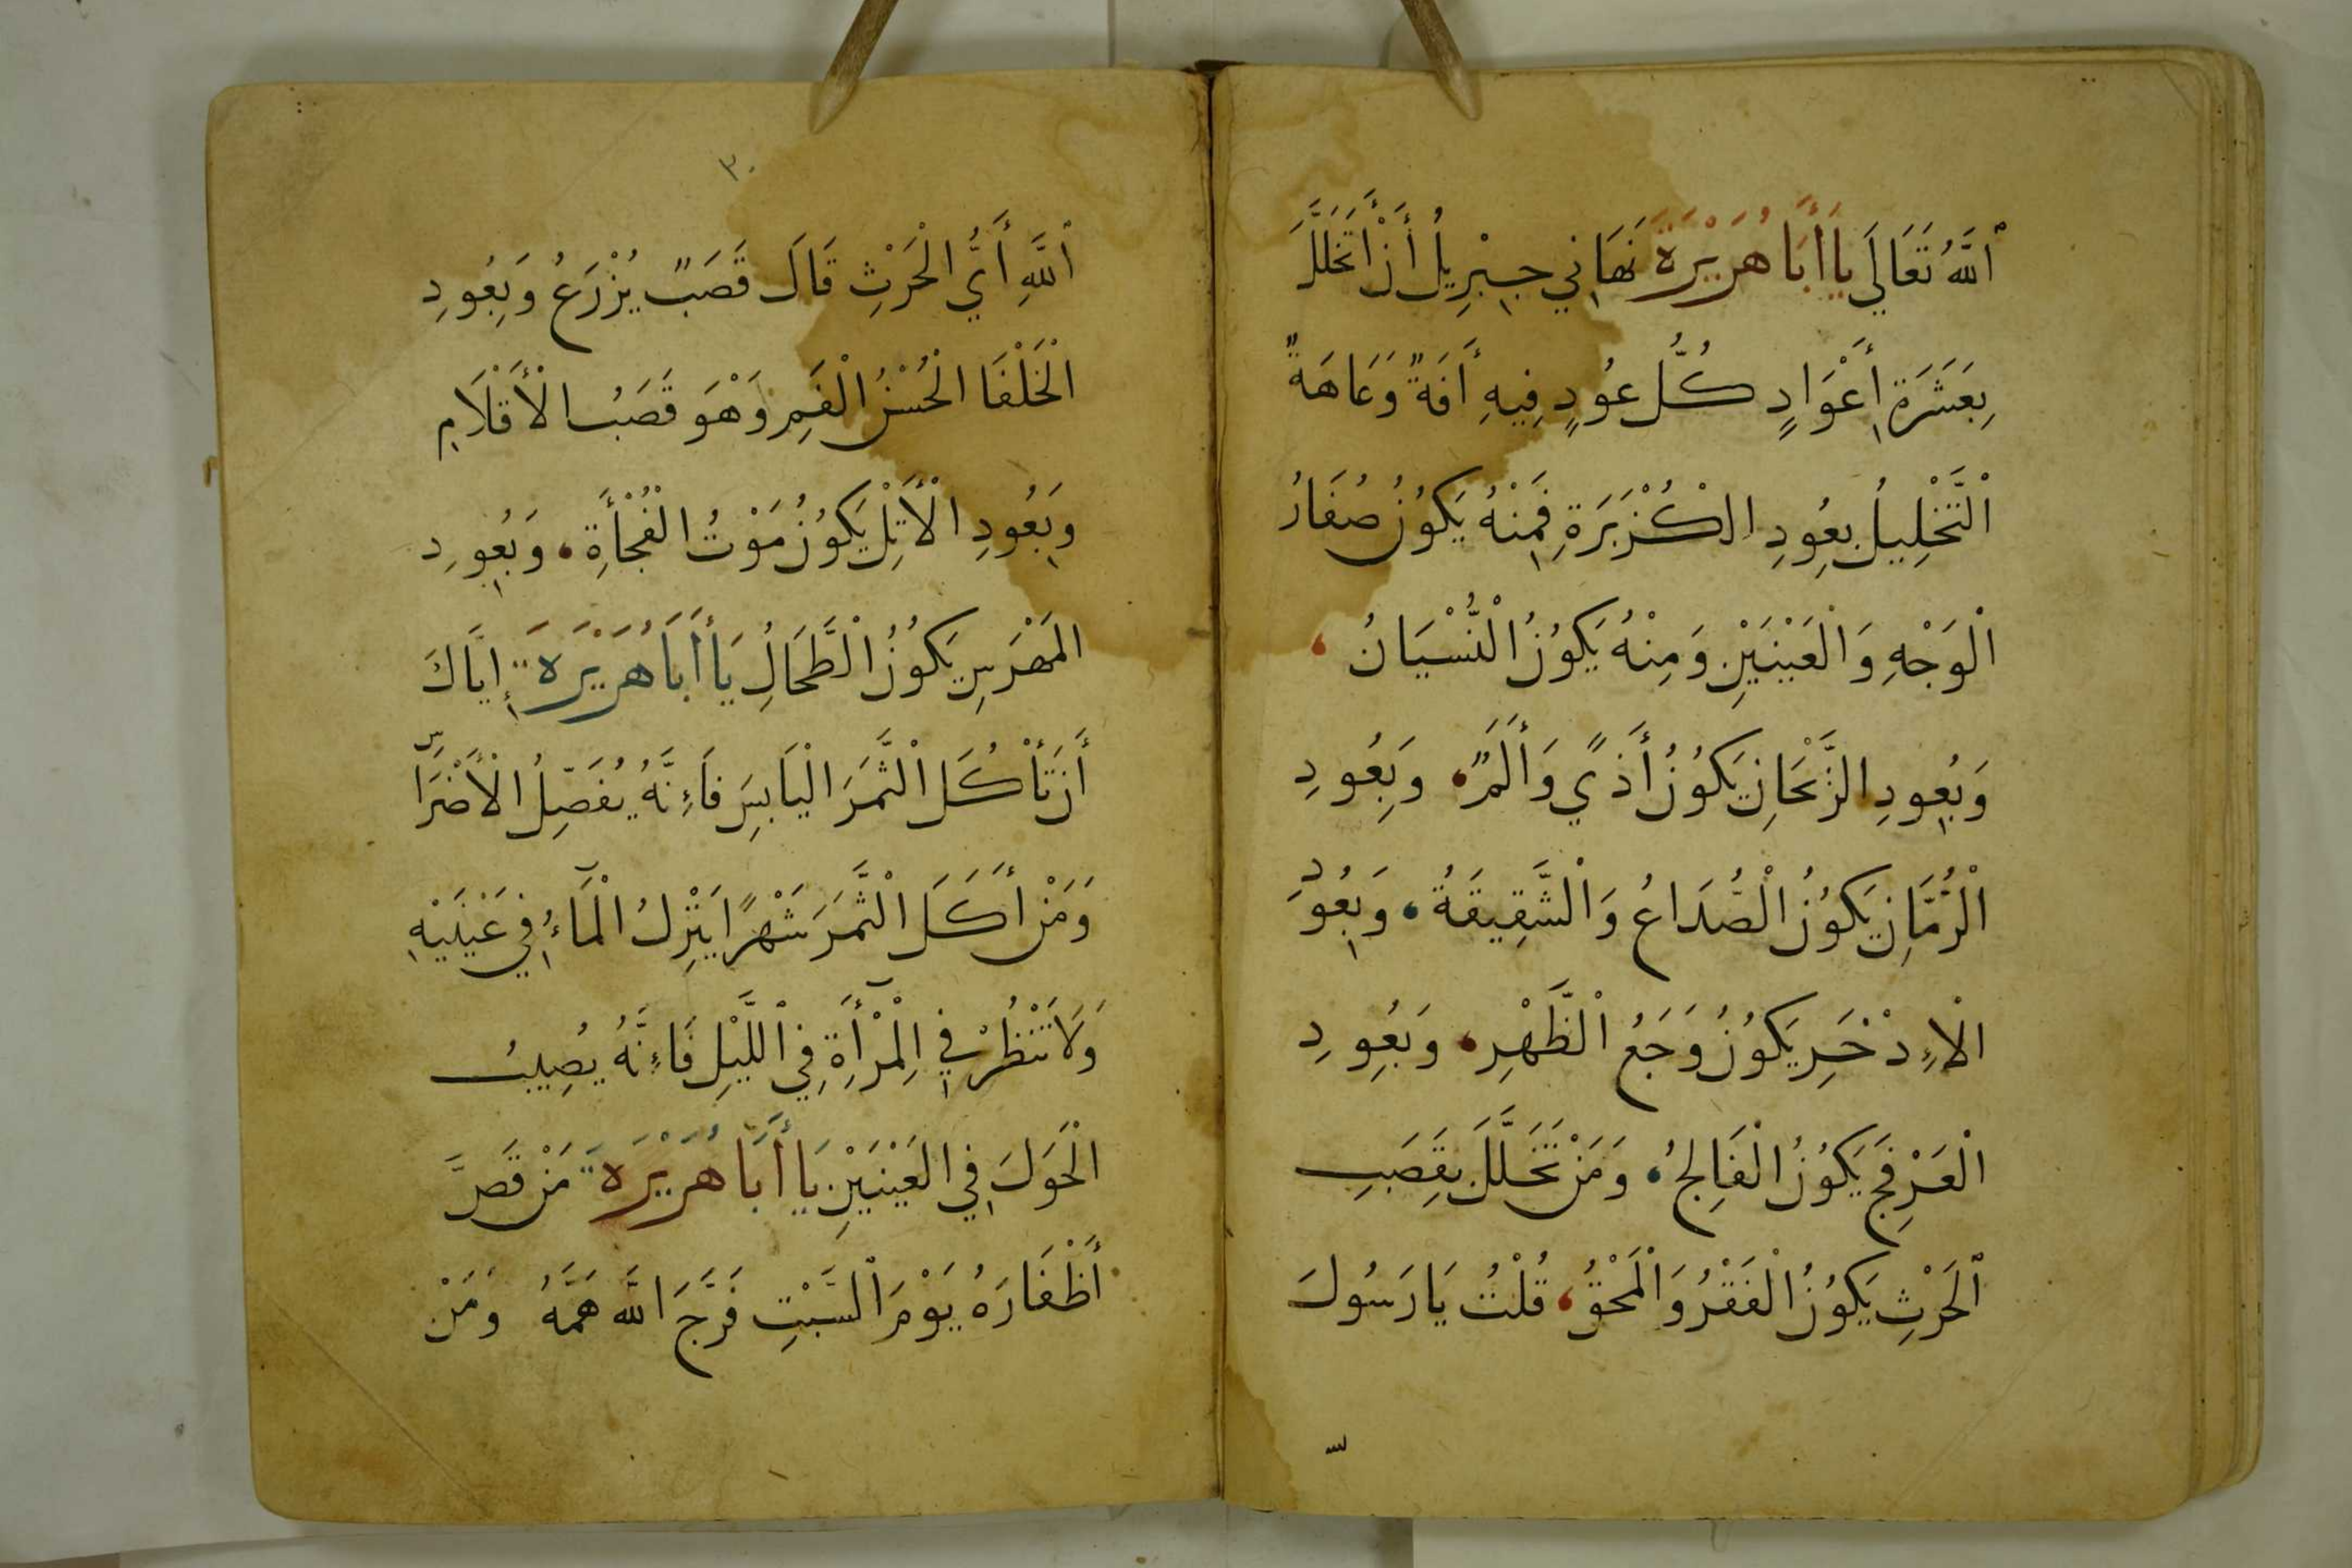 ٱللَّهُ تَعَالَي يَا أَبَا هُرَيْرَةَ نَهَانِي جِبْرِيلُ أَنْ أَتَخَلَّلَ
بِعَشَرَةِ أَعْوَادٍ كُلُّ عُودٍ فِيهِ أَفَةٌ وَعَاهَةٌ
اْلتَّخْلِيلُ بِعُودِ الْكُزْبَرَةِ فَمِنْهُ يَكُوُنُ صُفَارُ
اْلوَجْهِ وَالْعَيْنَيْنِ وَمِنْهُ يَكُوُنُ الْنُّسْيَانُ
وَبِعُودِ الرَّيْحَانِ يَكُوُنُ أَذًي وَأَلَمٌ وَبِعُودِ
اْلرُّمَّانِ يَكُوُنُ الْصُّدَاعُ وَالْشَّقِيقَةُ وَبِعُودِ
الْإِذْخَرِ يَكُوُنُ وَجَعُ الْظَّهْرِ وَبِعُودِ
الْعَرْفَجِ يَكُوُنُ الْفَالِجُ وَمَنْ تَخَلَّلَ بِقَصَبِ
اْلحَرْثِ يَكُوُنُ الْفَقْرُ وَالْمَحْقُ قُلْتُ يَا رَسُولَ
٣٠
ٱللَّهِ أَيُّ الْحَرْثِ قَالَ قَصَبٌ يُزْرَعُ وَبِعُودِ
الْخَلْفَا الْحُسْنُ الْفَمِ وَهْوَ قَصَبُ الْأَقْلَامِ
وَبِعُودِ الْأَتِلْ يَكُوُنُ مَوْتُ الْفُجْأَةِ وَبِعُودِ
المَهْرَسِ يَكُوُنُ الْطَّحَالِ يَا أَبَا هُرَيْرَةَ إِيَّاكَ
أَنْ تَأْكُلَ الْثَّمَرَ الْيَابِسَ فَإِنَّهُ يُفَصِّلُ الْأَضْرَاسَ
وَمَنْ أَكَلَ الْثَّمَرَ شَهْرًا يَنْزِلُ الْمَآءُ فِي عَيْنَيْهِ
وَلَا تَنْظُرْ فِي الِمْرْآةِ فِي اْللَّيْلِ فَإِنَّهُ يُصِيبُ
الْحَوَلَ فِي العَيْنَيْنِ يَا أَبَا هُرَيْرَةَ مَنْ قَصَّ
أَظْفَارَهُ يَوْمَ الْسَّبْتِ فَرَّجَ اللَّه هَمَّهُ وَمَنْ